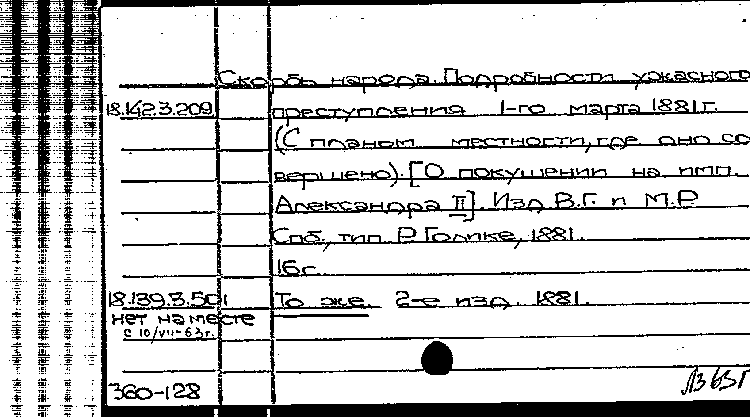 Скорбь народа. Подробности ужасного
18.142.3.209 преступления 1-го марта 1881 г.
(С планом местности, где оно со
вершено). [О покушении на имп.
Александра II]. Изд. В.Г. и М.Р.
Спб., тип. Р. Голике, 1881.
16 с.
18.139.3.501 То же. 2-е изд. 1881.
нет на месте
с 10/VII-63 г.
360-128